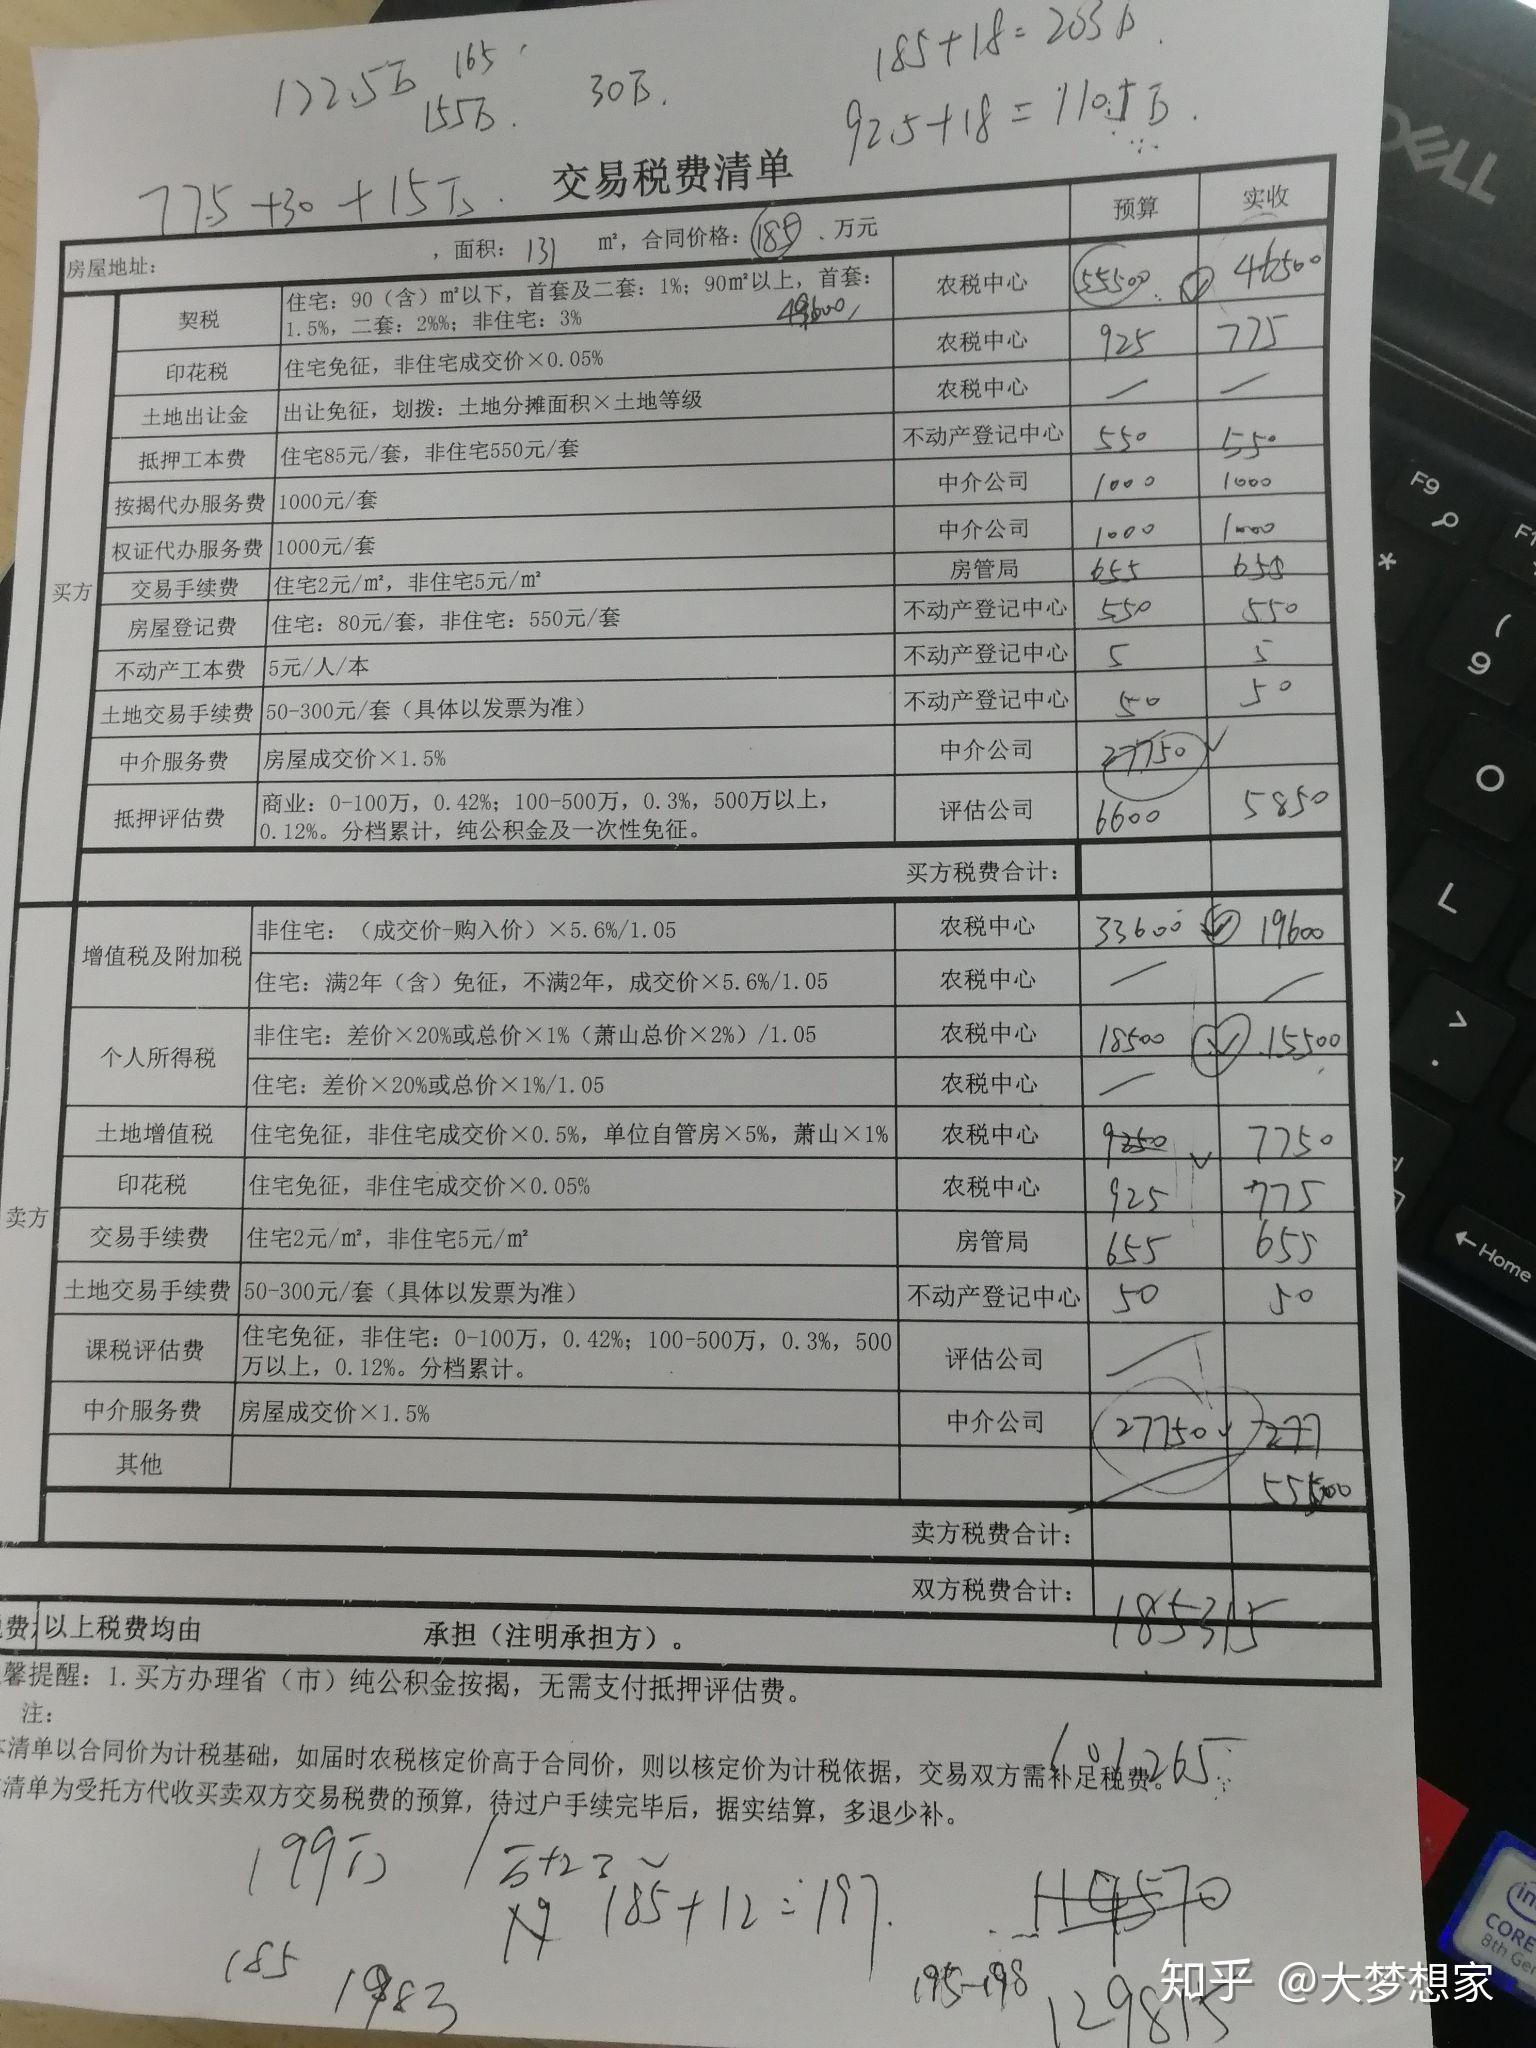 122.5万 165
155万.
30万.
185+18=203万.
92.5+18=110.5万.
77.5+30+15万.
交易税费清单
房屋地址: ,面积: 131 ㎡,合同价格: 185 .万元 预算 实收
买方
契税 住宅: 90(含)㎡以下,首套及二套: 1%; 90㎡以上,首套: 农税中心 55500 46500
1.5%,二套: 2%%; 非住宅: 3%
印花税 住宅免征,非住宅成交价×0.05% 农税中心 925 775
土地出让金 出让免征,划拨: 土地分摊面积×土地等级 农税中心 — —
抵押工本费 住宅85元/套,非住宅550元/套 不动产登记中心 550 550
按揭代办服务费 1000元/套 中介公司 1000 1000
权证代办服务费 1000元/套 中介公司 1000 1000
交易手续费 住宅2元/㎡,非住宅5元/㎡ 房管局 655 655
房屋登记费 住宅: 80元/套,非住宅: 550元/套 不动产登记中心 550 550
不动产工本费 5元/人/本 不动产登记中心 5 5
土地交易手续费 50-300元/套(具体以发票为准) 不动产登记中心 50 50
中介服务费 房屋成交价×1.5% 中介公司 27750
抵押评估费 商业: 0-100万, 0.42%; 100-500万, 0.3%, 500万以上, 评估公司 6600 5850
0.12%。分档累计,纯公积金及一次性免征。
买方税费合计:
卖方
增值税及附加税 非住宅: (成交价-购入价)×5.6%/1.05 农税中心 33600 19600
住宅: 满2年(含)免征,不满2年,成交价×5.6%/1.05 农税中心 — —
个人所得税 非住宅: 差价×20%或总价×1%(萧山总价×2%)/1.05 农税中心 18500 15500
住宅: 差价×20%或总价×1%/1.05 农税中心 —
土地增值税 住宅免征,非住宅成交价×0.5%,单位自管房×5%,萧山×1% 农税中心 9250 7750
印花税 住宅免征,非住宅成交价×0.05% 农税中心 925 775
交易手续费 住宅2元/㎡,非住宅5元/㎡ 房管局 655 655
土地交易手续费 50-300元/套(具体以发票为准) 不动产登记中心 50 50
课税评估费 住宅免征,非住宅: 0-100万, 0.42%; 100-500万, 0.3%, 500 评估公司 —
万以上, 0.12%。分档累计。
中介服务费 房屋成交价×1.5% 中介公司 27750 277
其他 55500
卖方税费合计:
双方税费合计: 185315
费 以上税费均由 承担(注明承担方)。
馨提醒: 1.买方办理省(市)纯公积金按揭,无需支付抵押评估费。
注:
本清单以合同价为计税基础,如届时农税核定价高于合同价,则以核定价为计税依据,交易双方需补足税费。
清单为受托方代收买卖双方交易税费的预算,待过户手续完毕后,据实结算,多退少补。
199万
185+12=197.
114570
185
1983
195-198
129815
DELL
F9
9
O
L
>
.
Home
CORE
8th Gen
知乎 @大梦想家